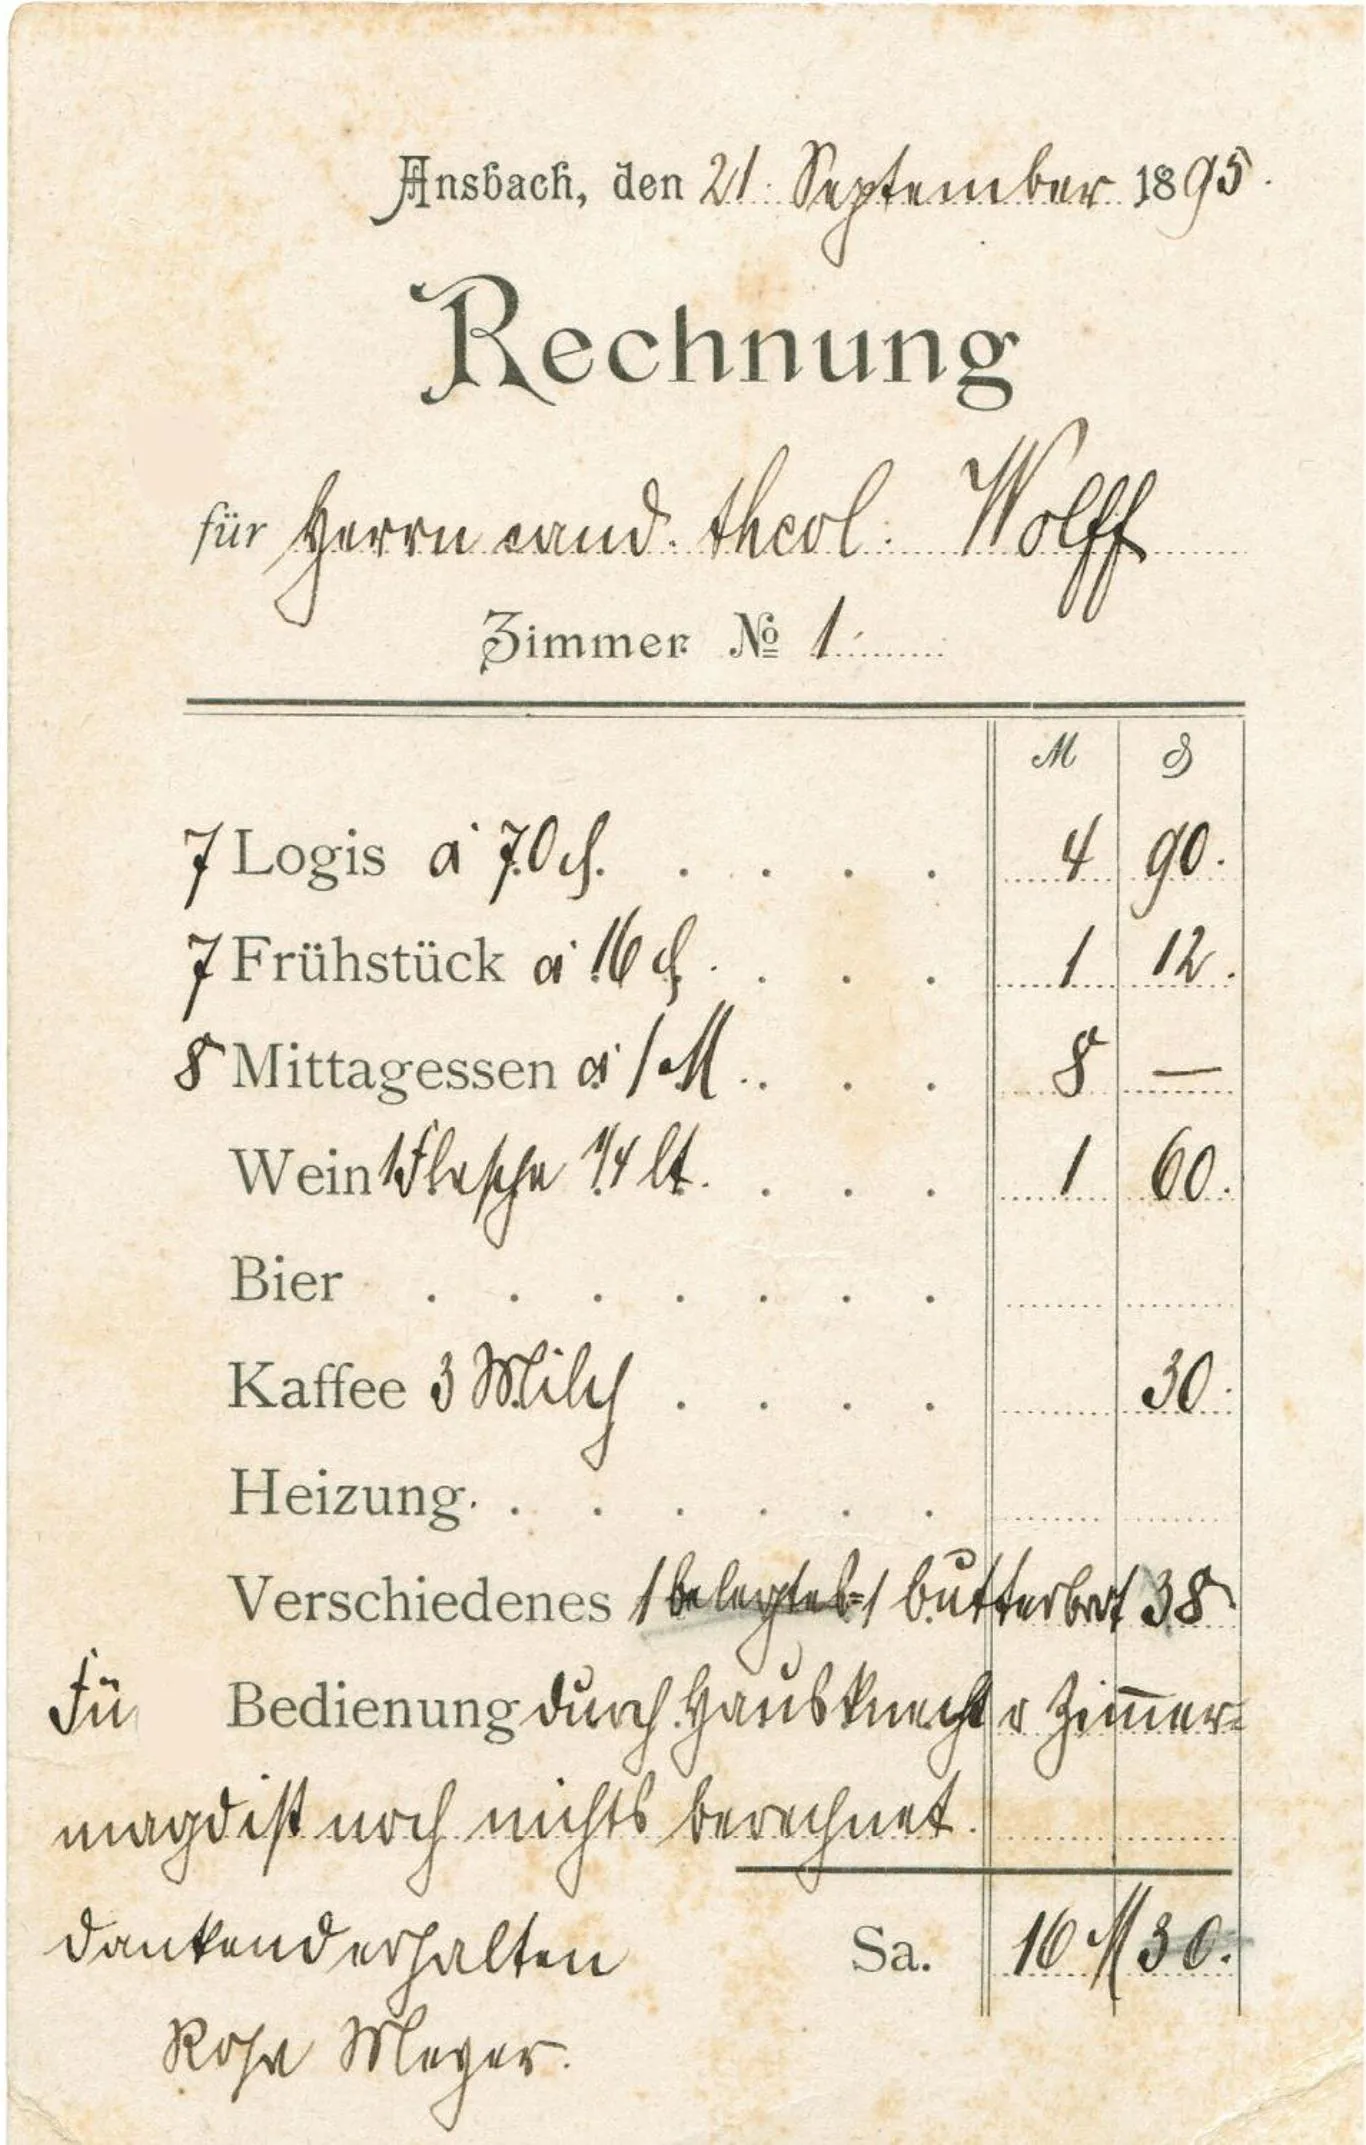 Ansbach, den 21. September 1895.
Rechnung
für Herrn cand. theol. Wolff
Zimmer № 1
M ₰
7 Logis à 70 ₰. 4 90.
7 Frühstück à 16 ₰. 1 12.
8 Mittagessen à 1 M. 8 —
Wein 1 Flasche 1/4 lt. 1 60.
Bier
Kaffee 3 Milch 30.
Heizung
Verschiedenes 1 belegtes=1 butterbrot 38
Für Bedienung durch Hausknecht u Zim̅er=
magd ist noch nichts berechnet.
dankend erhalten Sa. 16 M 30.
Meyer.